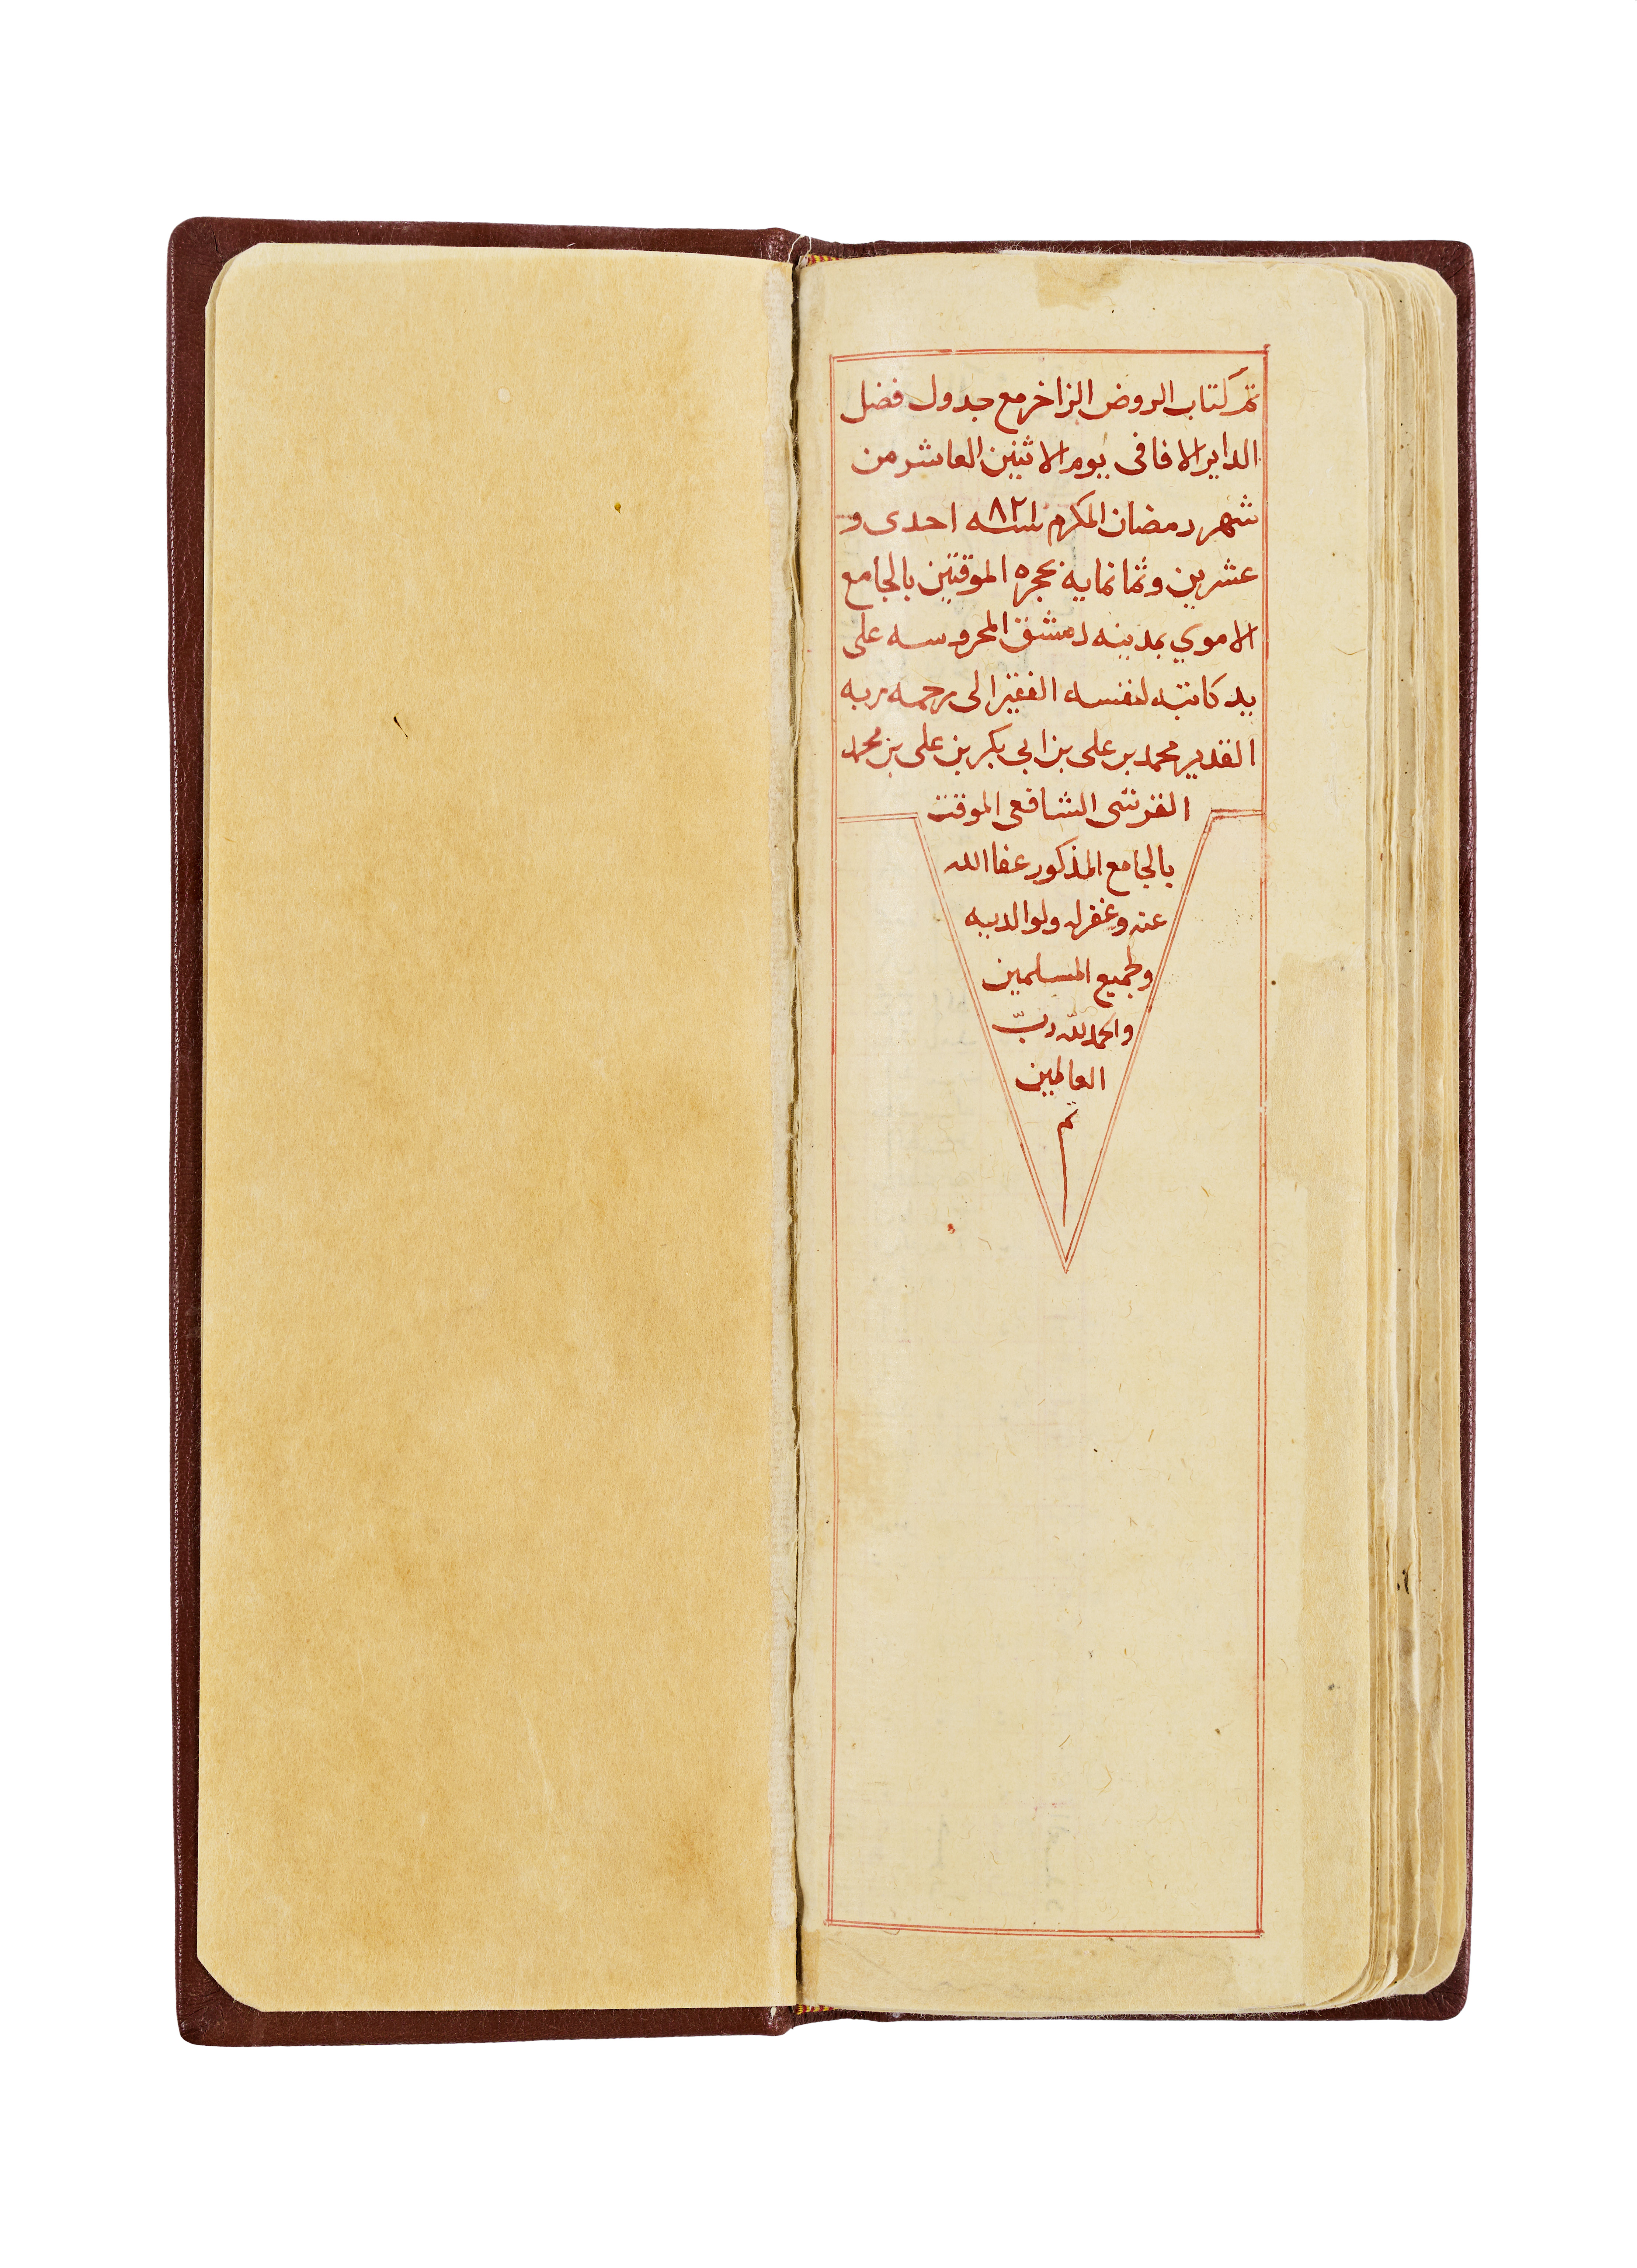 تم كتاب الروض الزاخر مع جدول فضل
الداير الافاقى يوم الاثنين العاشر من
شهر رمضان المكرم سنه ٨٢١ احدى و
عشرين وثمانمايه بحجره الموقتين بالجامع
الاموي بمدينه دمشق المحروسه على
يد كاتبه لنفسه الفقير الى رحمه ربه
القدير محمد بن على بن ابي بكر بن على بن محمد
القرشى الشافعى الموقت
بالجامع المذكور عفا الله
عنه وغفر له ولوالديه
ولجميع المسلمين
والحمد لله ربّ
العالمين
تم